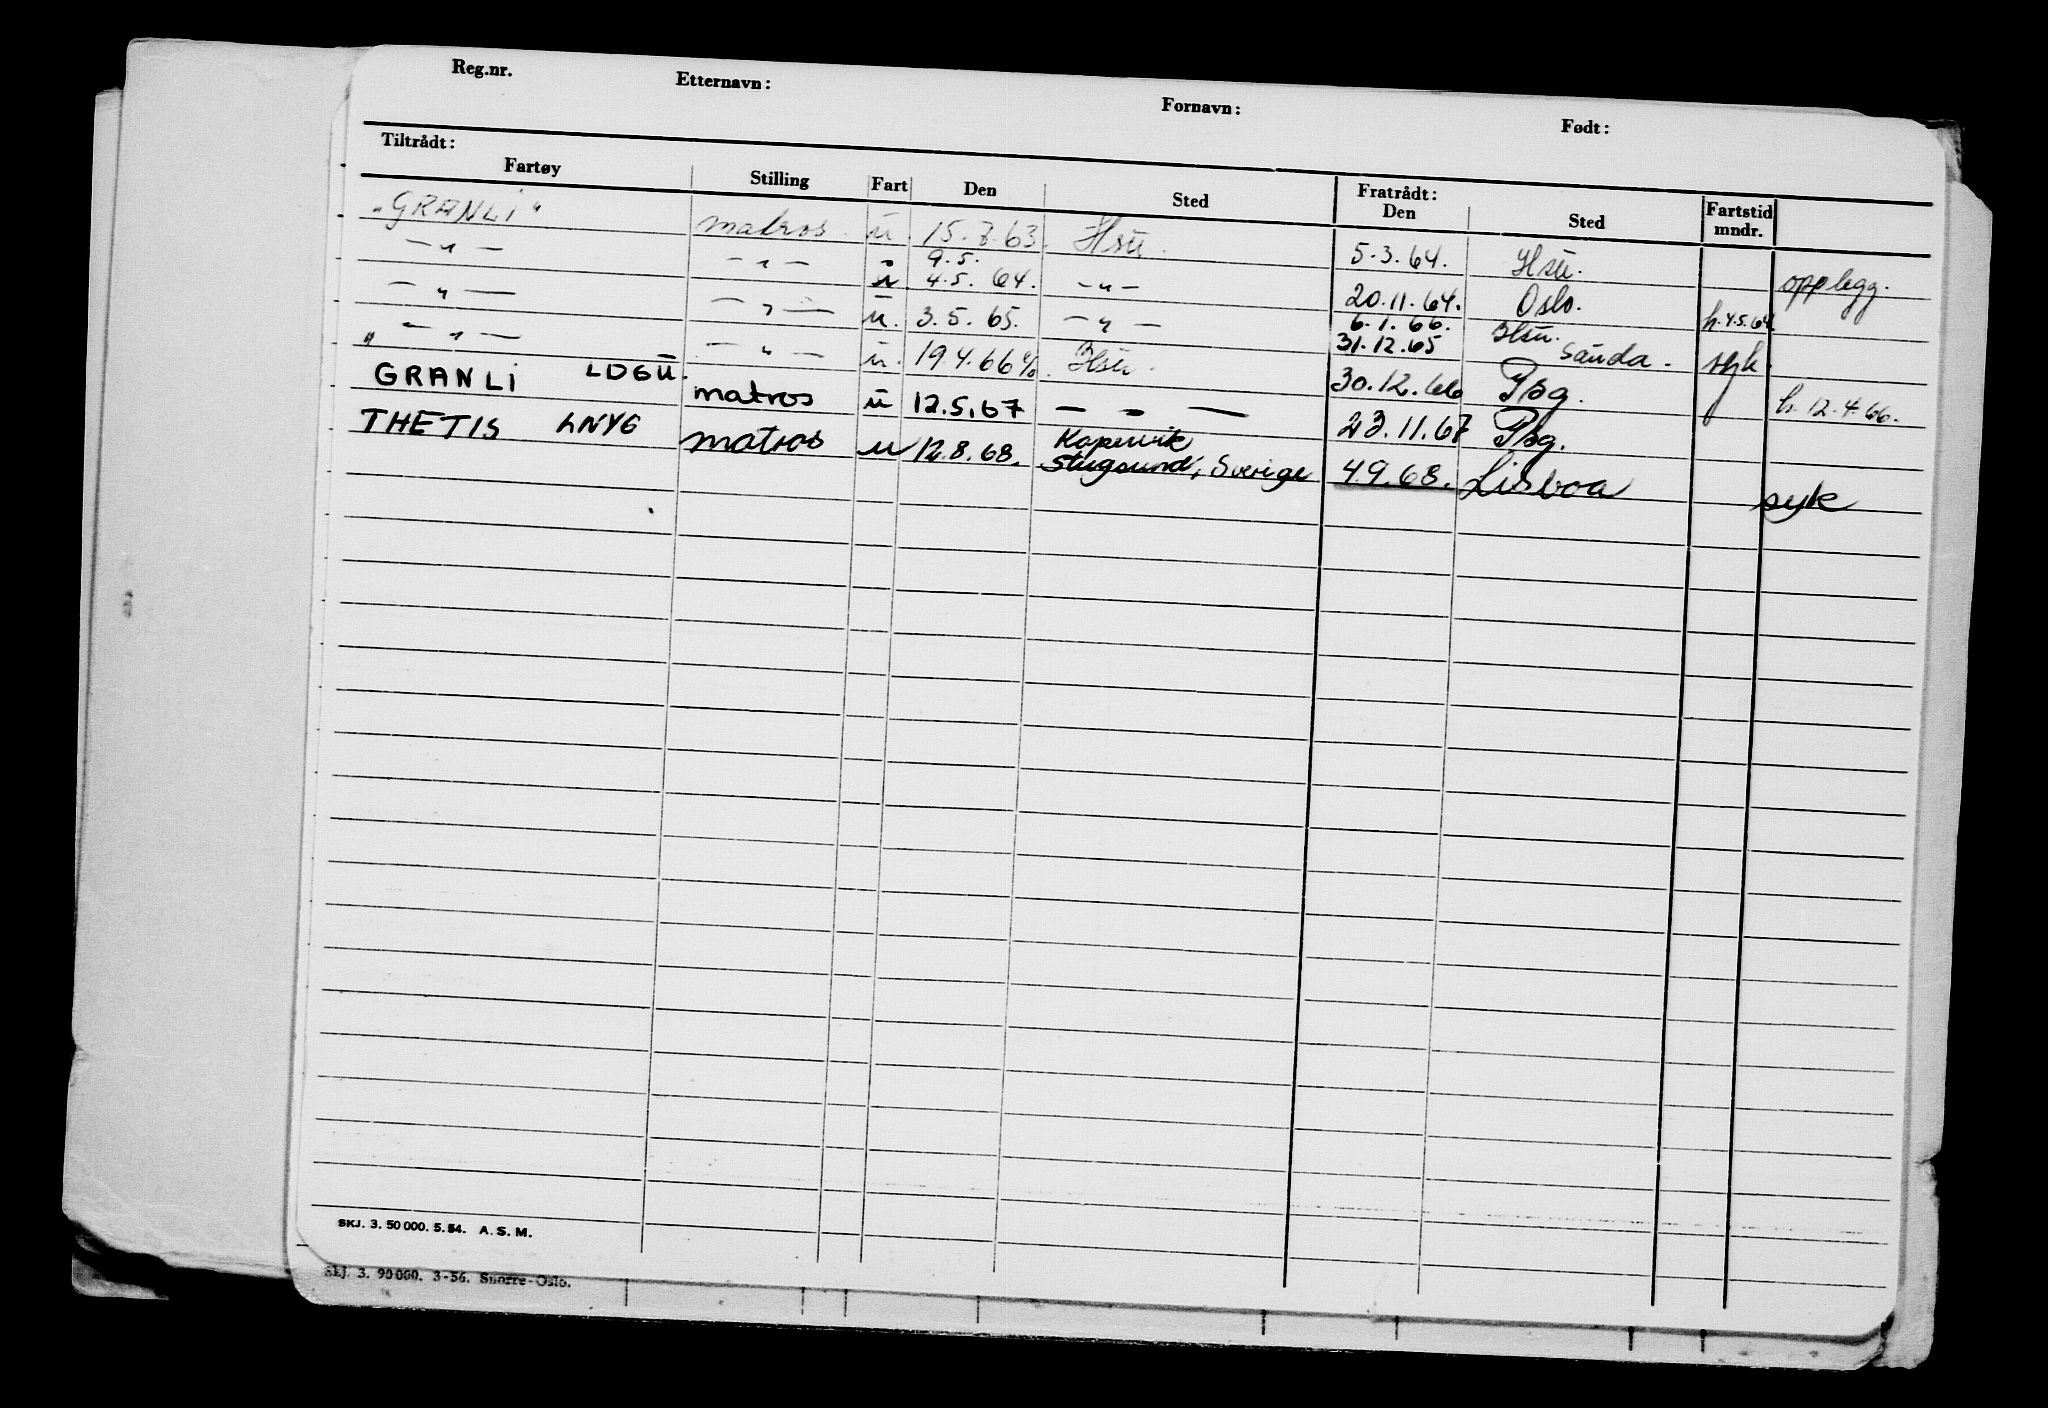 Reg.nr. Etternavn: Fornavn: Født:
Tiltrådt: Fratrådt:
Fartøy Stilling Fart Den Sted Den Sted Fartstid mndr.
„GRANLI" matros. u. 15.8.63. Hsu. 5.3.64. Hsu. opplegg.
9.5.
— „ — — „ — u 4.5.64. — „ — 20.11.64. Oslo. h.4.5.64
6.1.66. Hsu.
— „ — — „ — u. 3.5.65. — „ — 31.12.65 Sauda. syk.
„ — „ — — „ — u. 19.4.66 Hsu. 30.12.66 Psg. h. 12.4.66.
GRANLI LDGU. matros u 12.5.67 — „ — 23.11.67 Psg.
Kopervik
THETIS LNYG matros u 12.8.68. Stugsund, Sverige 4.9.68. Lisboa syk
SKJ. 3. 50 000. 5.54. A. S. M.
Skj. 3. 90 000. 3-56. Snorre-Oslo.